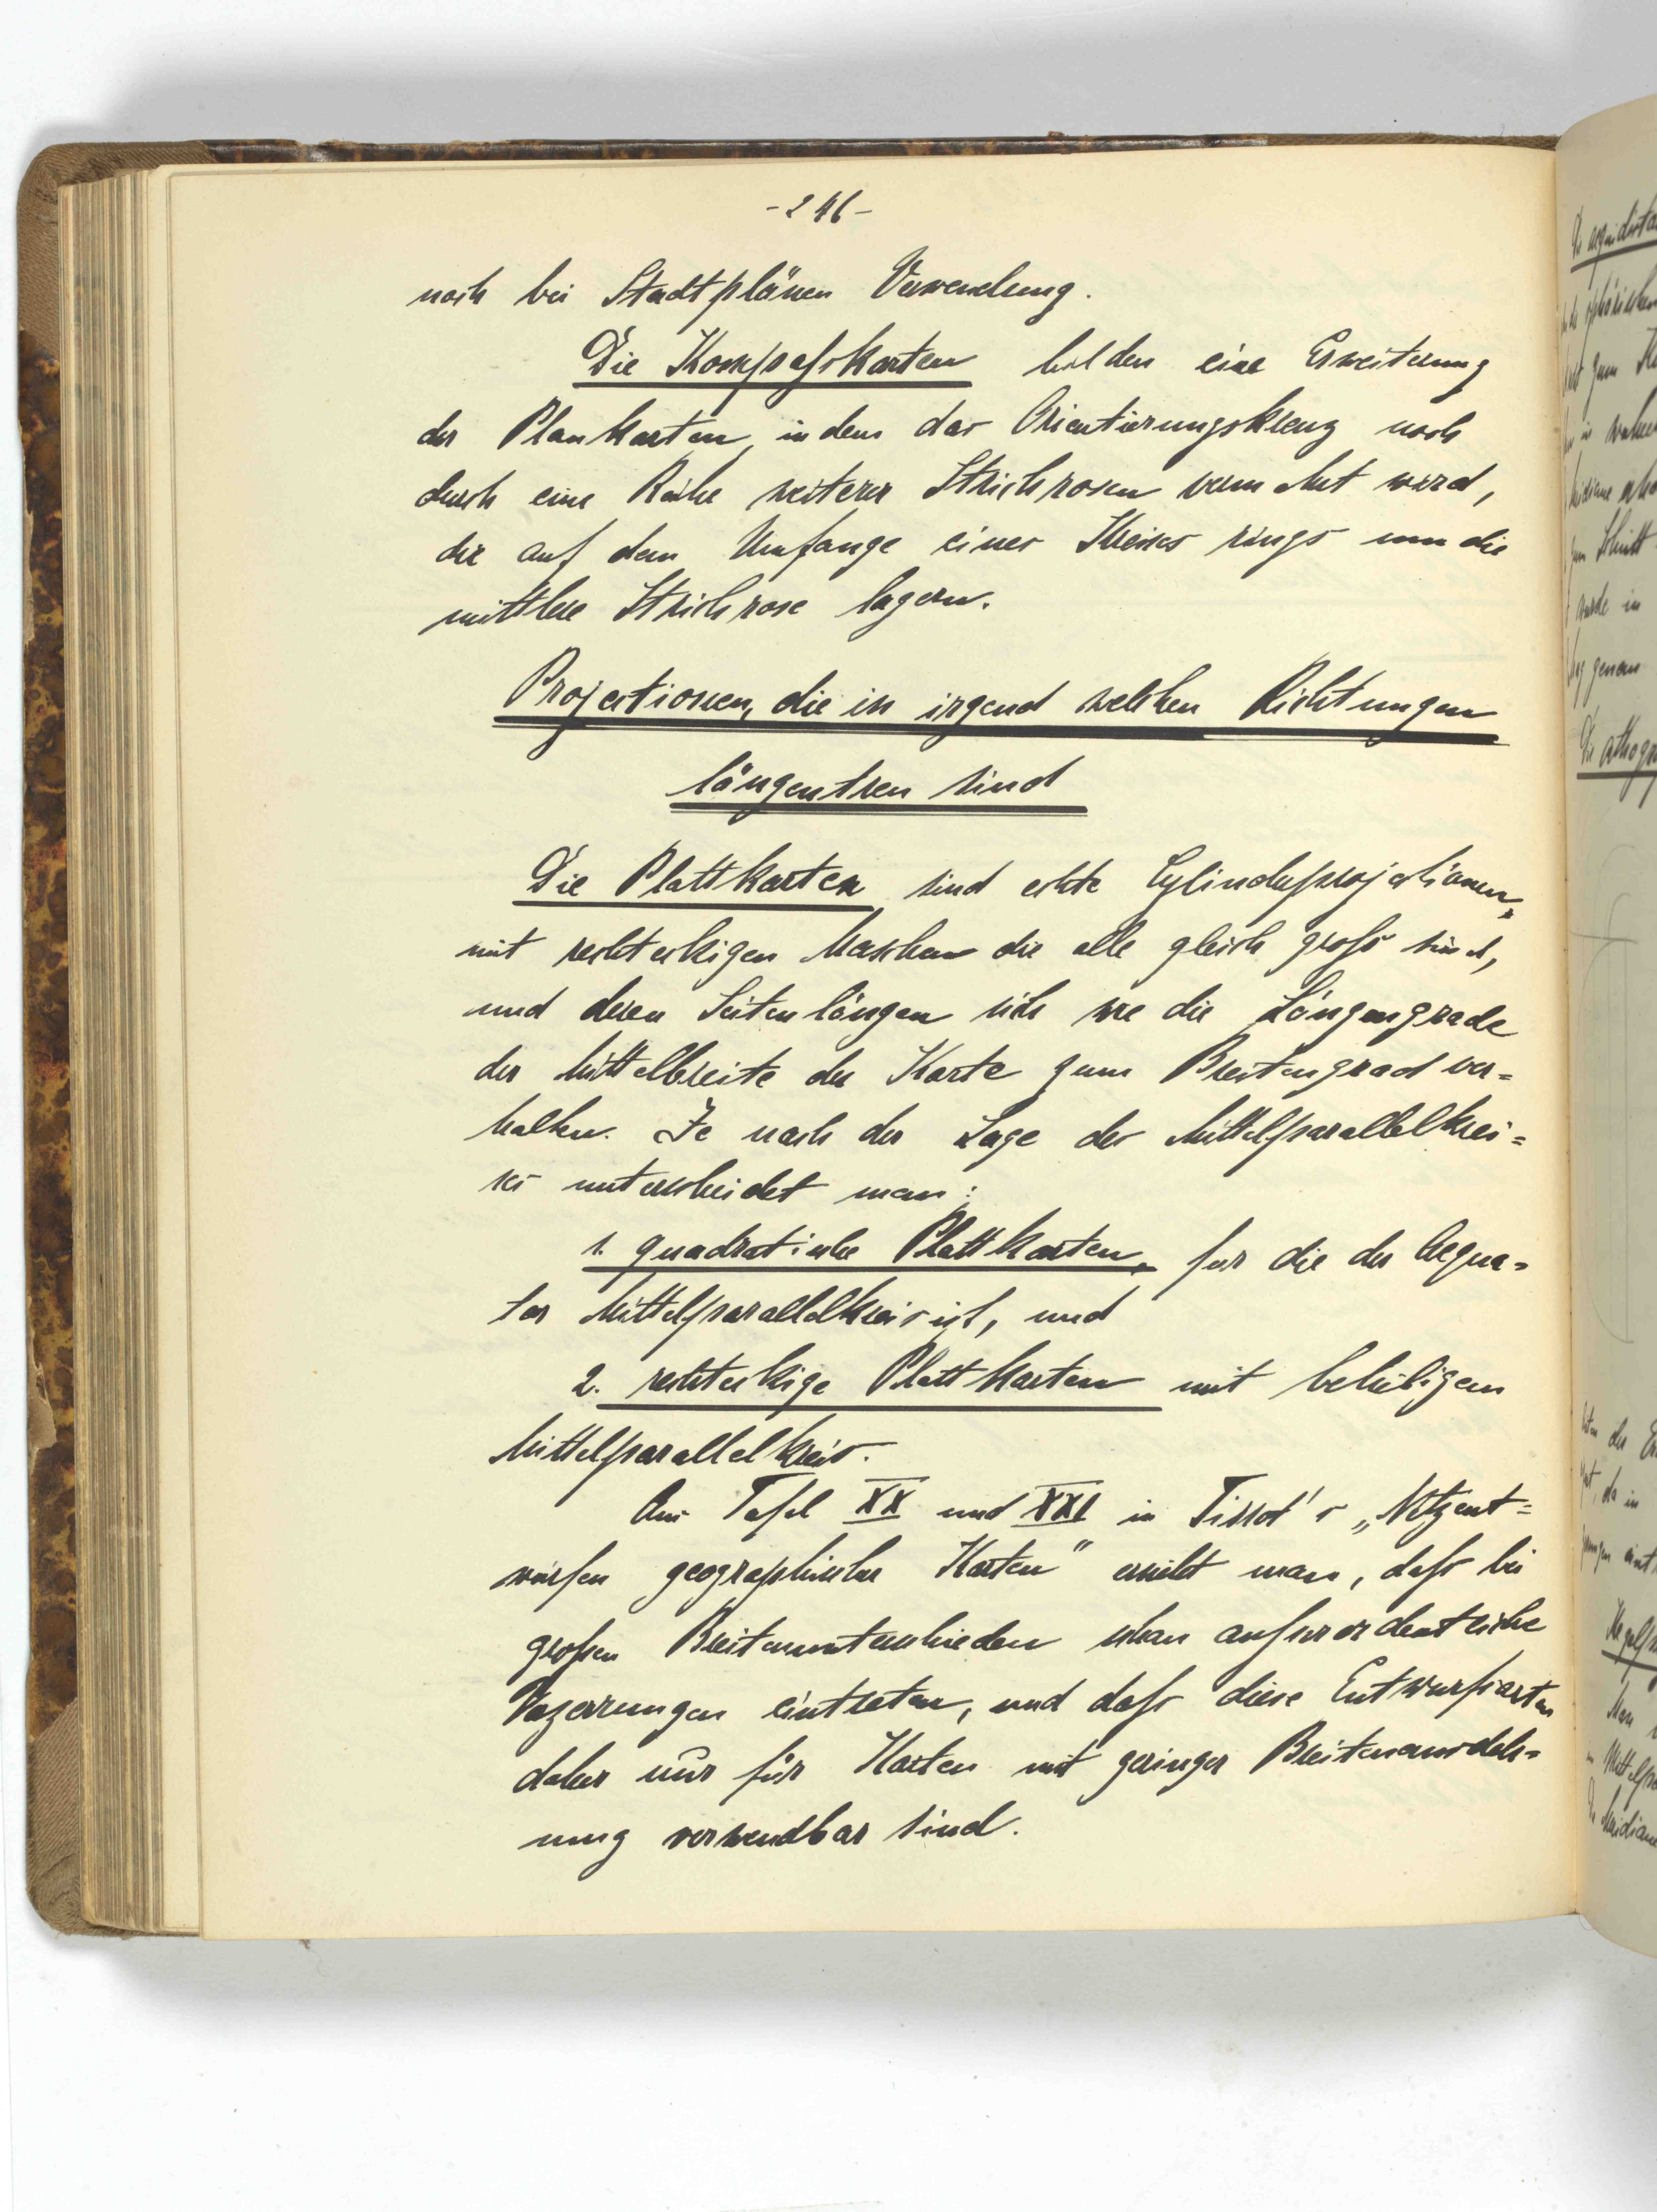 - 246 -
noch bei Stadtplänen Verwendung.
Die Kompaßkarten bilden eine Erweiterung
der Plankarten, indem das Orientierungskreuz noch
durch eine Reihe weiterer Strichrosen vermehrt wird,
die auf dem Umfange eines Kreises rings um die
mittlere Strichrose lagern.
Projectionen, die in irgend welchen Richtungen
längentreu sind
Die Plattkarten sind echte Cylinderprojectionen,
mit rechteckigen Maschen die alle gleich groß sind,
und deren Seitenlängen sich wie die Längengrade
der Mittelbreite der Karte zum Breitengrad ver=
halten. Je nach der Lage des Mittelparallelkrei=
ses unterscheidet man:
1. quadratische Plattkarten, für die der Aequa=
tor Mittelparallelkreis ist, und
2. rechteckige Plattkarten mit beliebigem
Mittelparallelkreis.
Aus Tafel XX und XXI in Tissot's „Netzent=
würfen geographischer Karten" ersieht man, daß bei
großen Breitenunterschieden schon außerordentliche
Verzerrungen eintreten, und daß diese Entwurfsarten
daher nur für Karten mit geringer Breitenausdeh=
nung verwendbar sind.